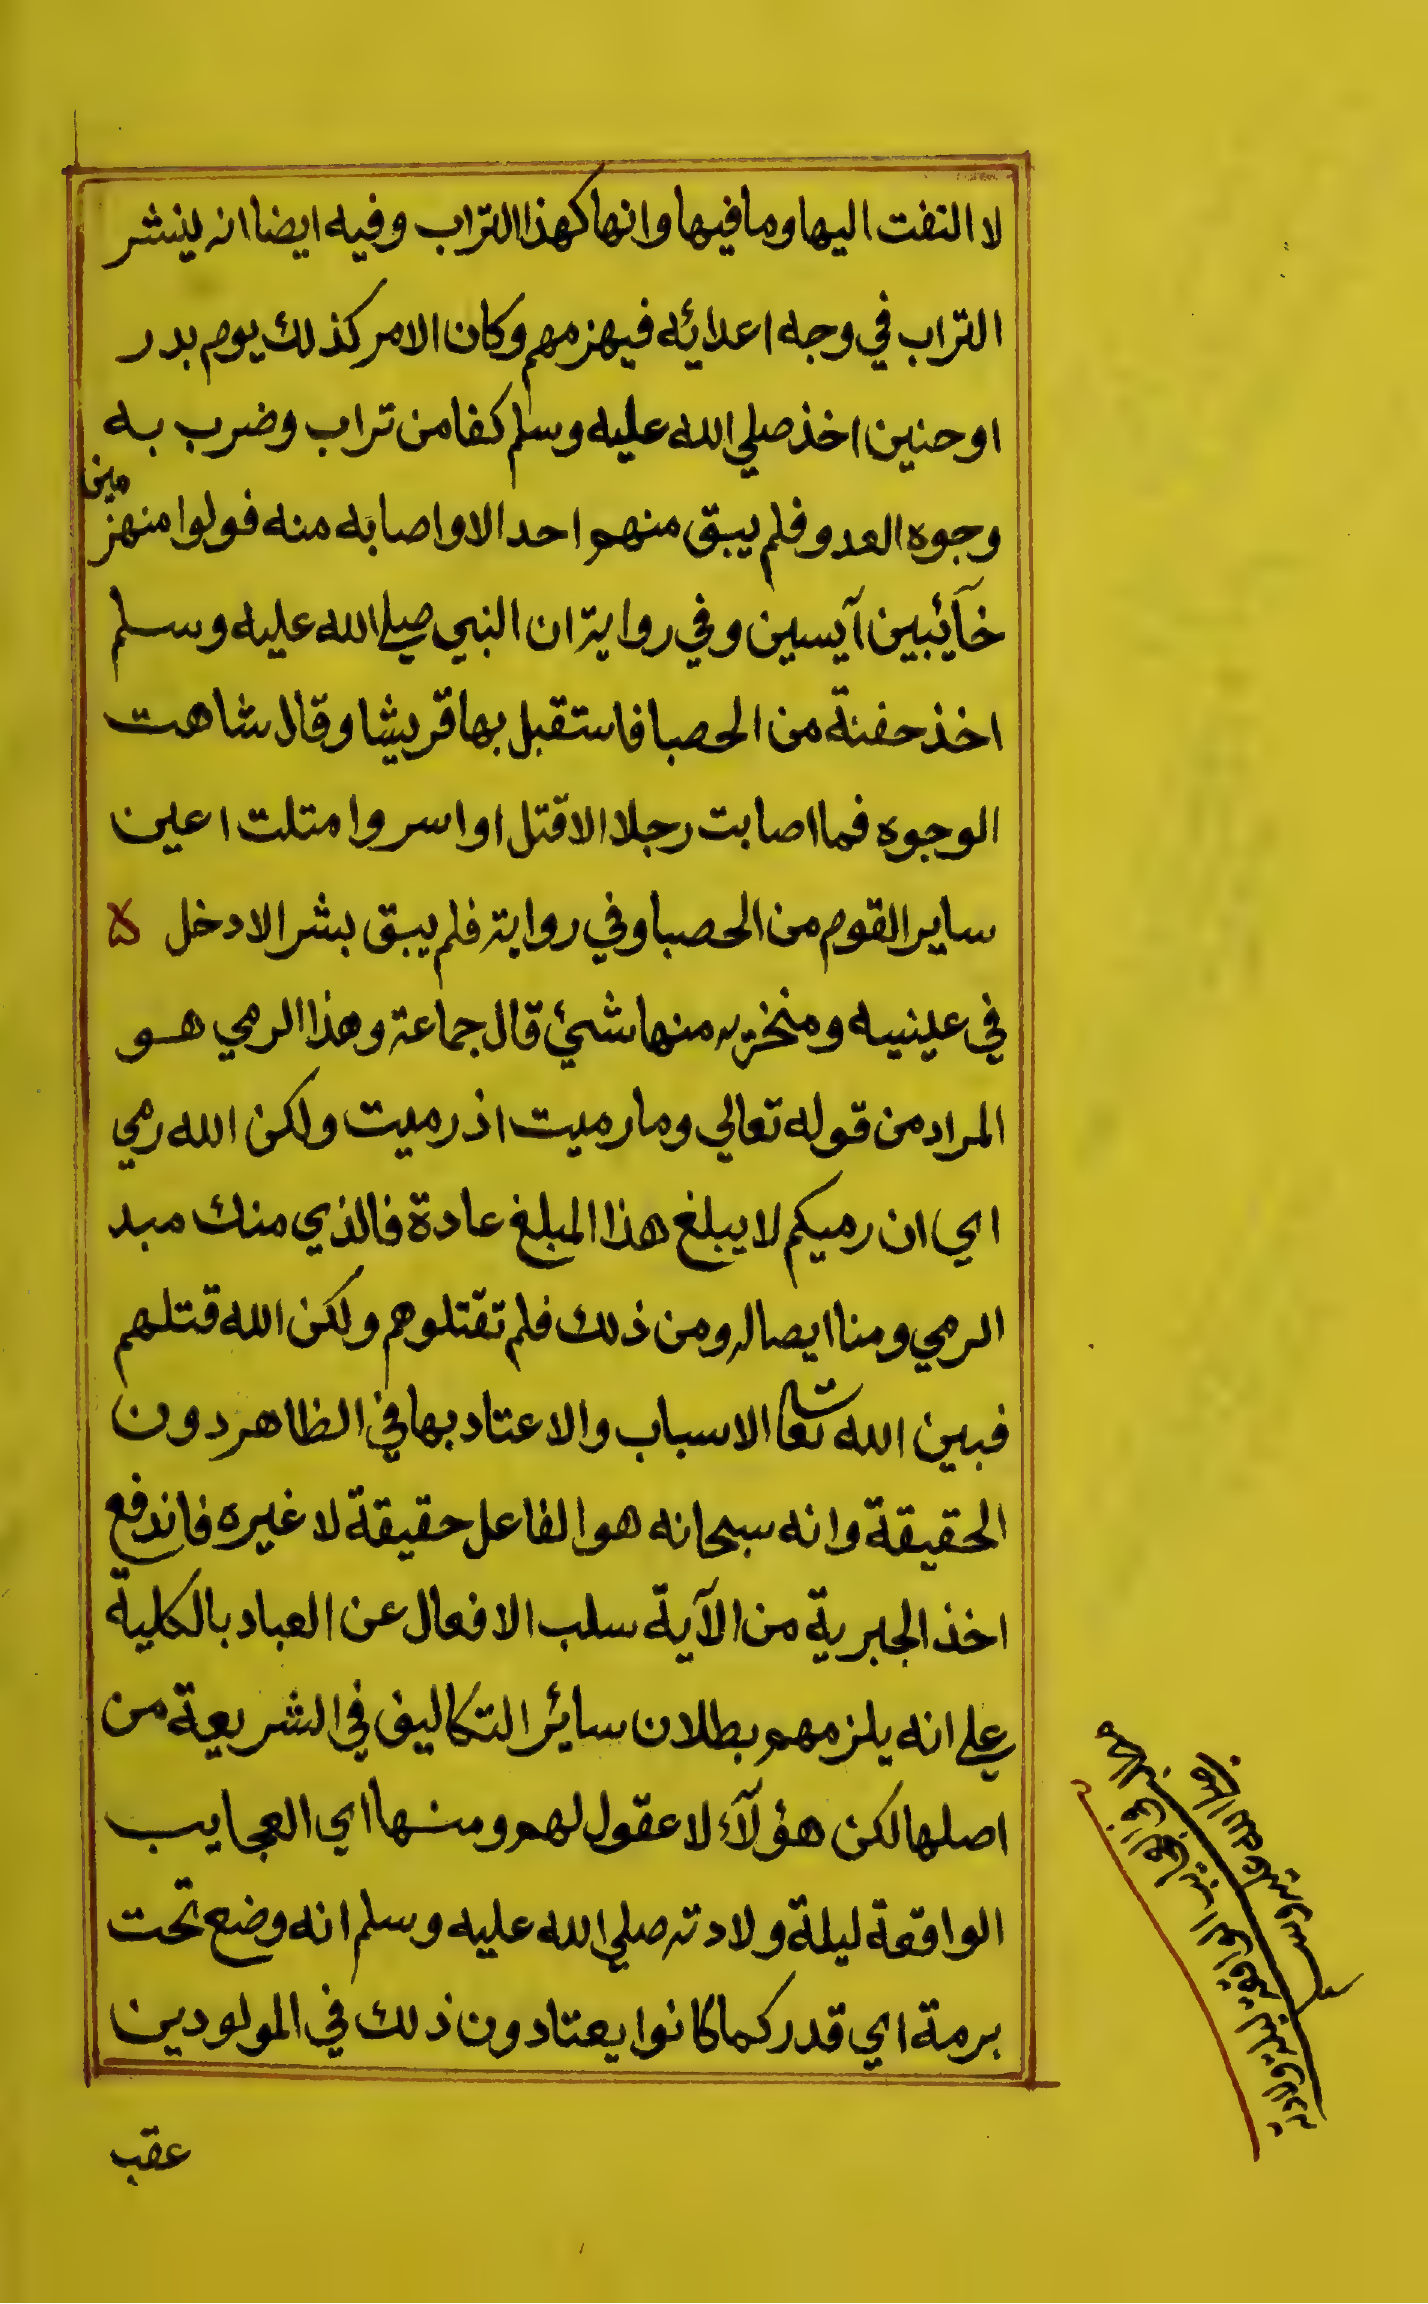 لا التفت اليها وما فيها وانها كهذا التراب وفيه ايضا انه ينشر
التراب في وجه اعدائه فيهزمهم وكان الامر كذلك يوم بدر
او حنين اخذ صلي الله عليه وسلم كفا من تراب وضرب به
وجوه العدو فلم يبق منهم احد الا واصابه منه فولوا منهزمين
خآئبين آيسين وفي رواية ان النبي صلي الله عليه وسلم
اخذ حفنة من الحصبا فاستقبل بها قريشا وقال شاهت
الوجوه فما اصابت رجلا الا قتل او اسر وامتلت اعين
ساير القوم من الحصبا وفي رواية فلم يبق بشر الا دخل
في عينيه ومنخريه منها شئ قال جماعة وهذا الرمي هو
المراد من قوله تعالي وما رميت اذ رميت ولكن الله رمي
اي ان رميكم لا يبلغ هذا المبلغ عادة فالذي منك مبد
الرمي ومنا ايصاله ومن ذلك فلم تقتلوهم ولكن الله قتلهم
فبين الله تعا الاسباب والاعتاد بها في الظاهر دون
الحقيقة وانه سبحانه هو الفاعل حقيقة لا غيره فاندفع
اخذ الجبرية من الآية سلب الافعال عن العباد بالكلية
علي انه يلزمهم بطلان سائر التكاليف في الشريعة من
اصلها لكن هؤلآء لا عقول لهم ومنها اي العجايب
الواقعة ليلة ولادته صلي الله عليه وسلم انه وضع تحت
برمة اي قدر كما كانوا يعتادون ذلك في المولودين
عقب